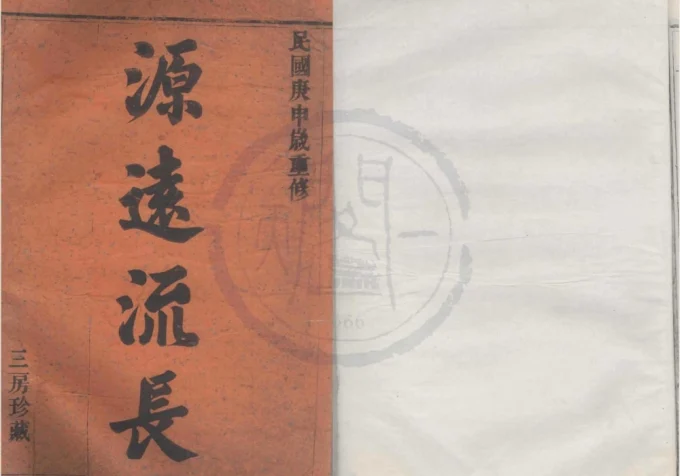 民國庚申歲重修
源遠流長
三房珍藏